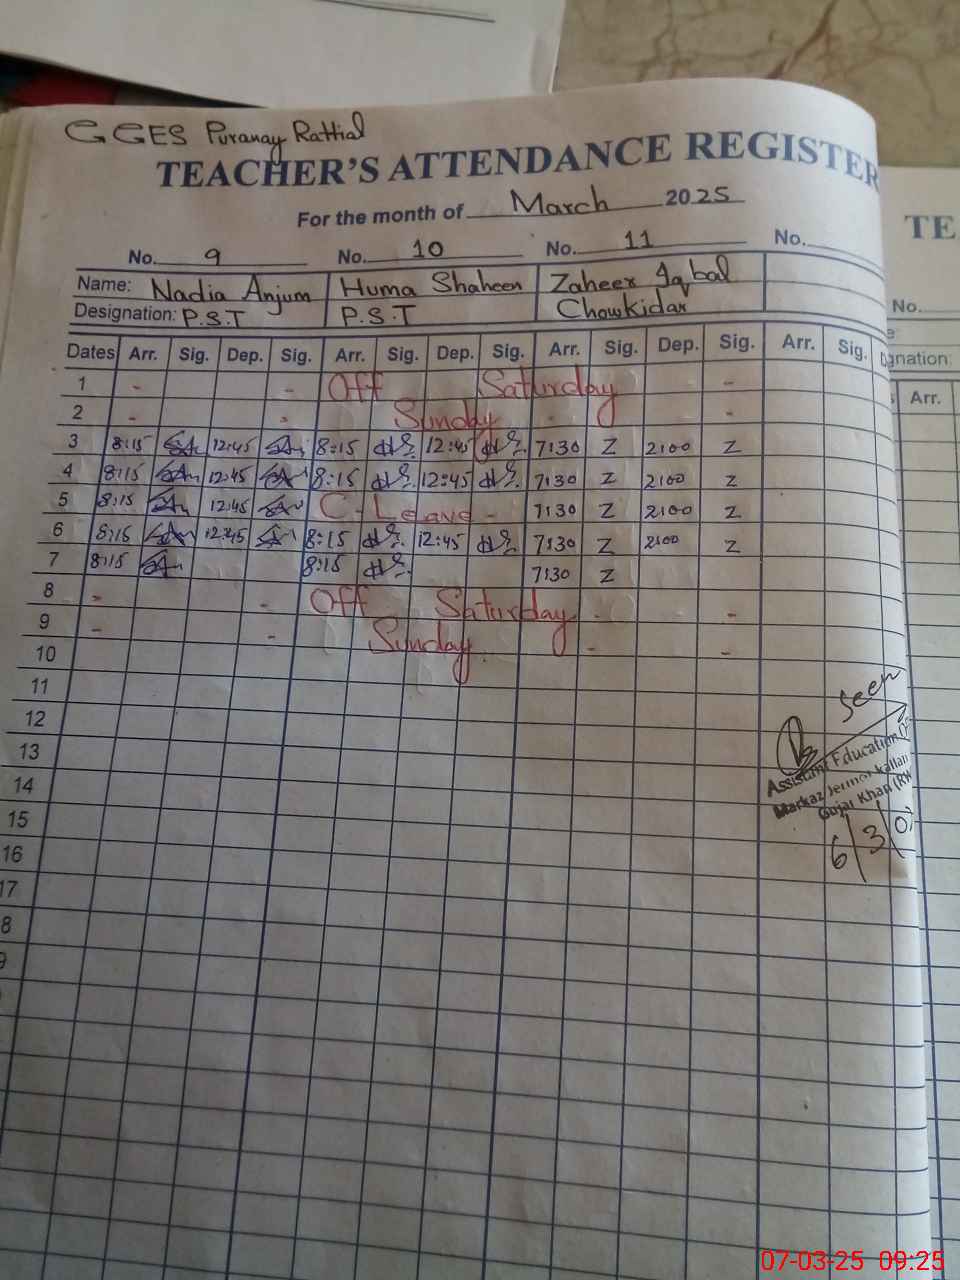 GGES Puranay Rattial
TEACHER'S ATTENDANCE REGISTER
For the month of March 2025
No. 9 No. 10 No. 11 No.
Name: Nadia Anjum Huma Shaheen Zaheer Iqbal
Designation: P.S.T P.S.T Chowkidar
Dates Arr. Sig. Dep. Sig. Arr. Sig. Dep. Sig. Arr. Sig. Dep. Sig. Arr. Sig.
1 - - Off Saturday -
2 - - Sunday - -
3 8:15 12:45 8:15 12:45 7:30 Z 2:00 Z
4 8:15 12:45 8:15 12:45 7:30 Z 2:00 Z
5 8:15 12:45 C-Leave - 7:30 Z 2:00 Z
6 8:15 12:45 8:15 12:45 7:30 Z 2:00 Z
7 8:15 8:15 7:30 Z
8 - - Off Saturday - -
9 - - Sunday - -
10
11
12
13
14
15
16
17
8
9
Seen
Assistant Education
Markaz
Gujar Khan (RW
6/3/
TE
No.
gnation:
Arr.
07-03-25 09:25